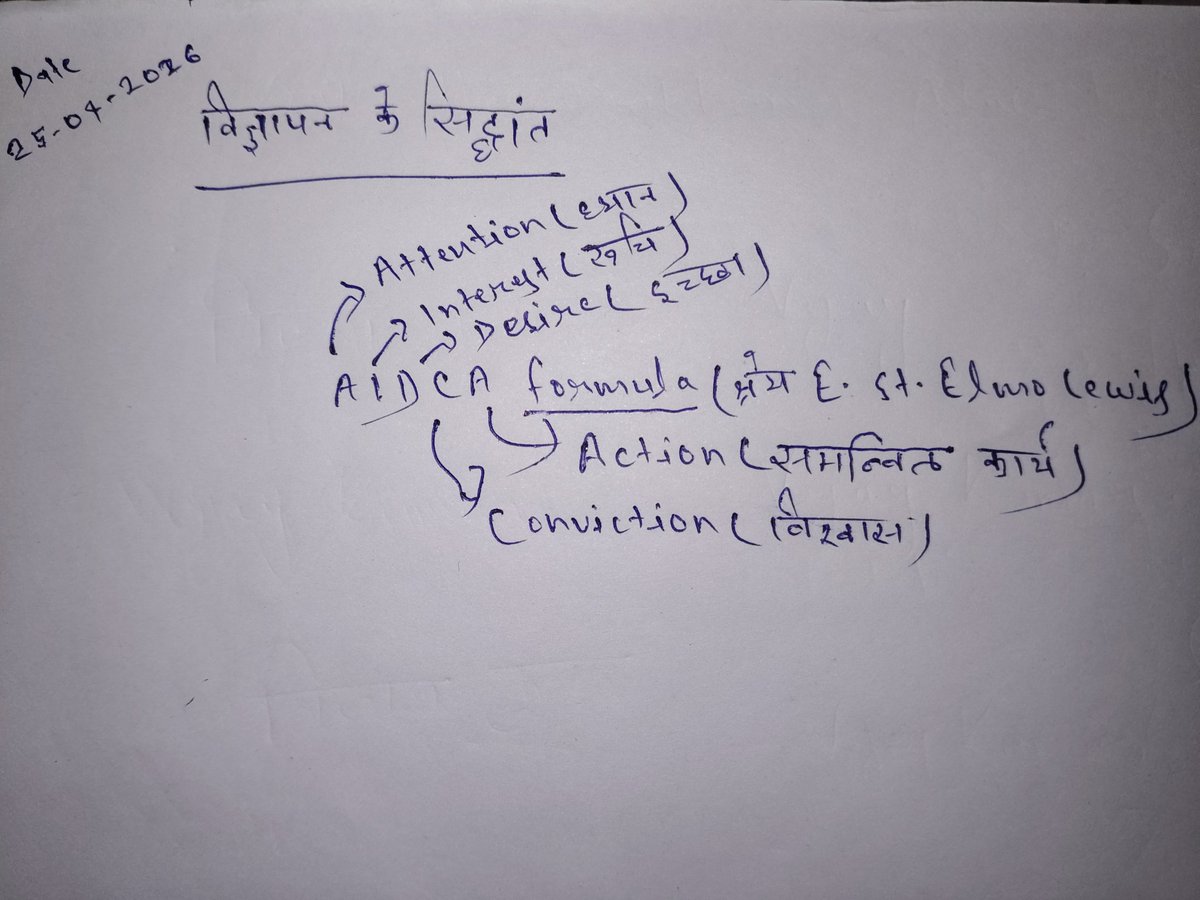 Date
25-04-2026
विज्ञापन के सिद्धांत
Attention (ध्यान)
Interest (रूचि)
Desire (इच्छा)
AIDCA formula (श्रेय E. St. Elmo Lewis)
Action (समन्वित कार्य)
Conviction (विश्वास)